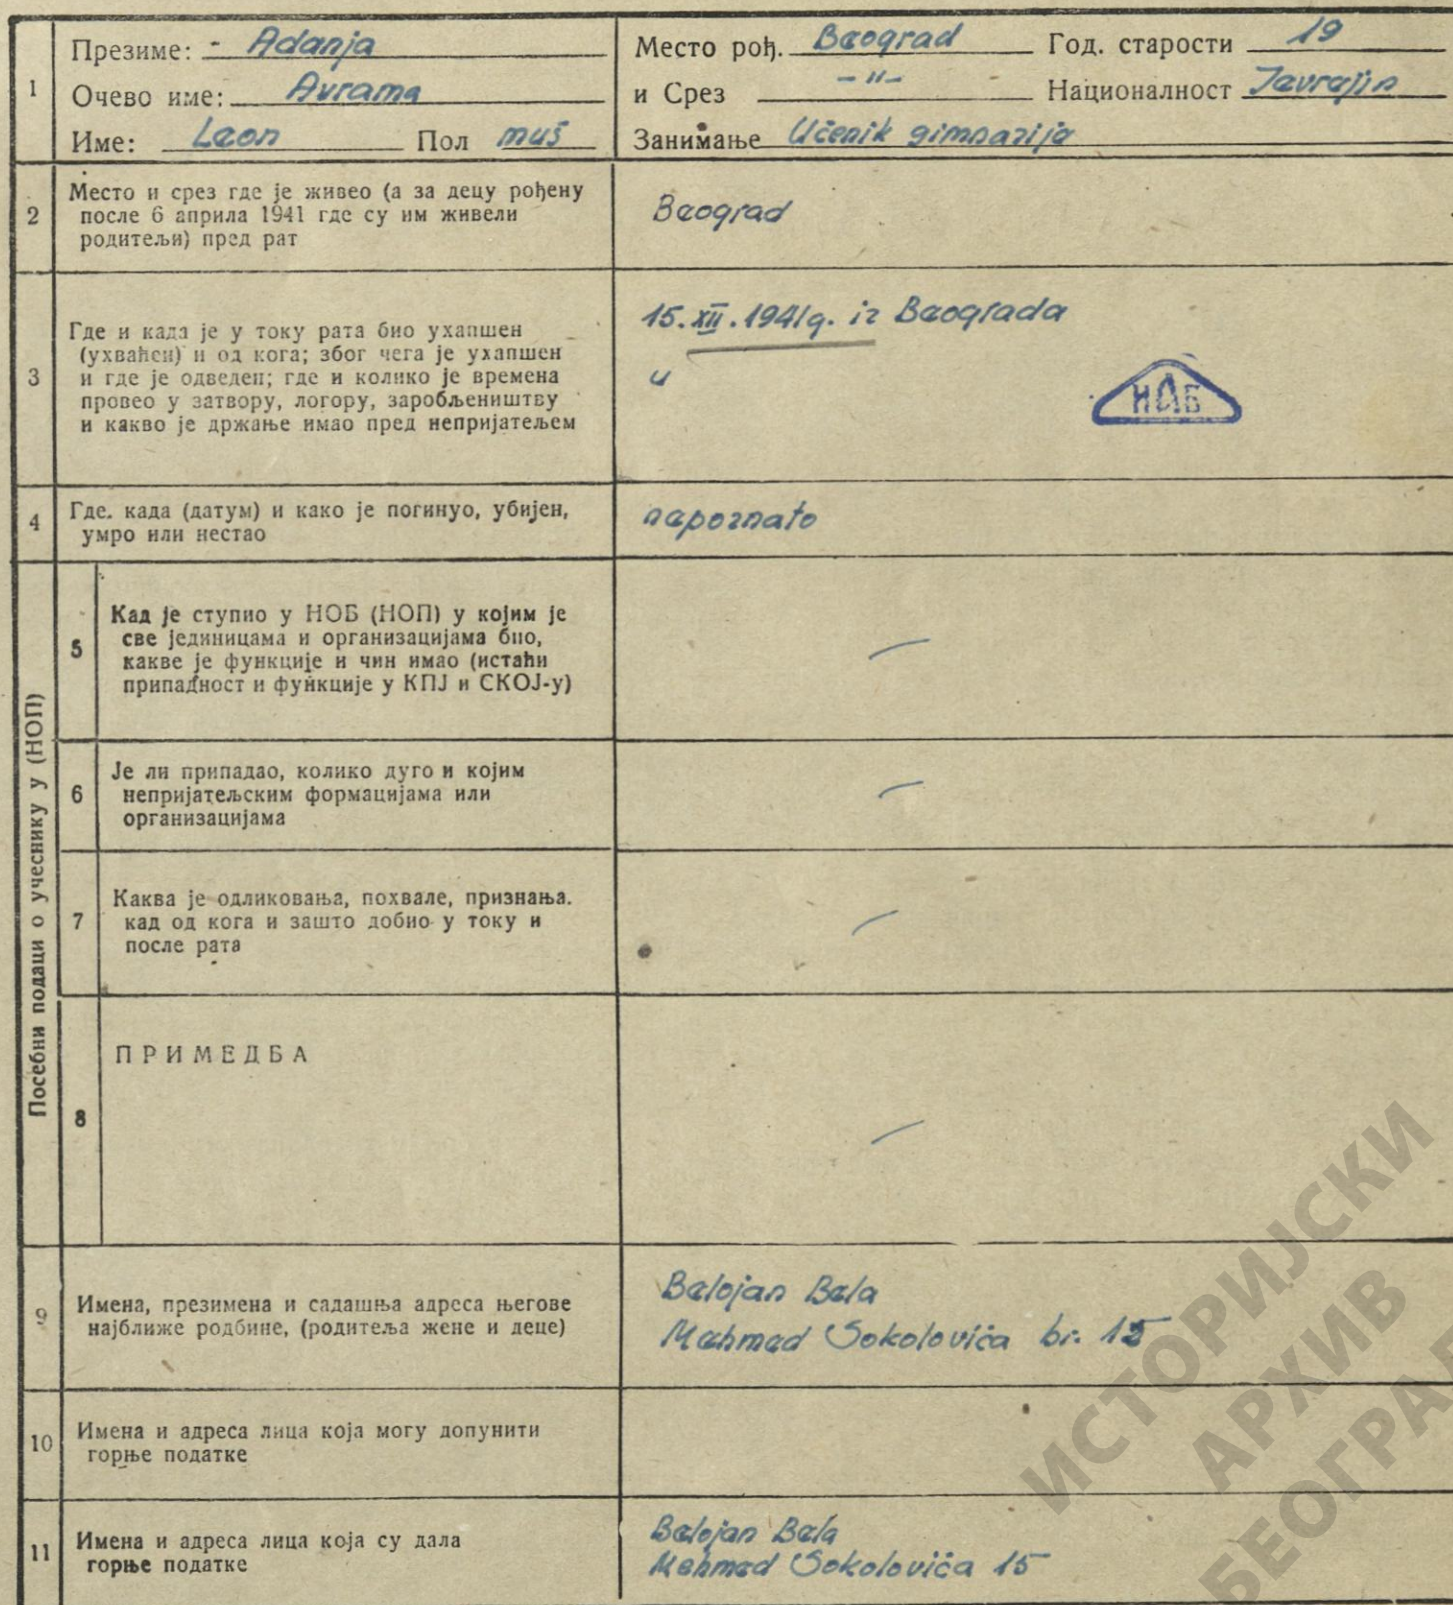 1
Презиме: - Adanja
Очево име: Avrama
Име: Leon Пол muš
Место рођ. Beograd Год. старости 19
и Срез -"- Националност Jevrejin
Занимање Učenik gimnazije
2
Место и срез где је живео (а за децу рођену
после 6 априла 1941 где су им живели
родитељи) пред рат
Beograd
3
Где и када је у току рата био ухапшен
(ухваћен) и од кога; због чега је ухапшен
и где је одведен; где и колико је времена
провео у затвору, логору, заробљеништву
и какво је држање имао пред непријатељем
15.XII.1941g. iz Beograda
u
НАБ
4
Где. када (датум) и како је погинуо, убијен,
умро или нестао
nepoznato
Посебни подаци о учеснику у (НОП)
5
Кад је ступио у НОБ (НОП) у којим је
све јединицама и организацијама био,
какве је функције и чин имао (истаћи
припадност и функције у КПЈ и СКОЈ-у)
—
6
Је ли припадао, колико дуго и којим
непријатељским формацијама или
организацијама
—
7
Каква је одликовања, похвале, признања.
кад од кога и зашто добио у току и
после рата
—
8
ПРИМЕДБА
—
9
Имена, презимена и садашња адреса његове
најближе родбине, (родитеља жене и деце)
Belojan Bela
Mehmed Sokolovića br. 15
10
Имена и адреса лица која могу допунити
горње податке
11
Имена и адреса лица која су дала
горње податке
Belojan Bela
Mehmed Sokolovića 15
ИСТОРИЈСКИ
АРХИВ
БЕОГРА